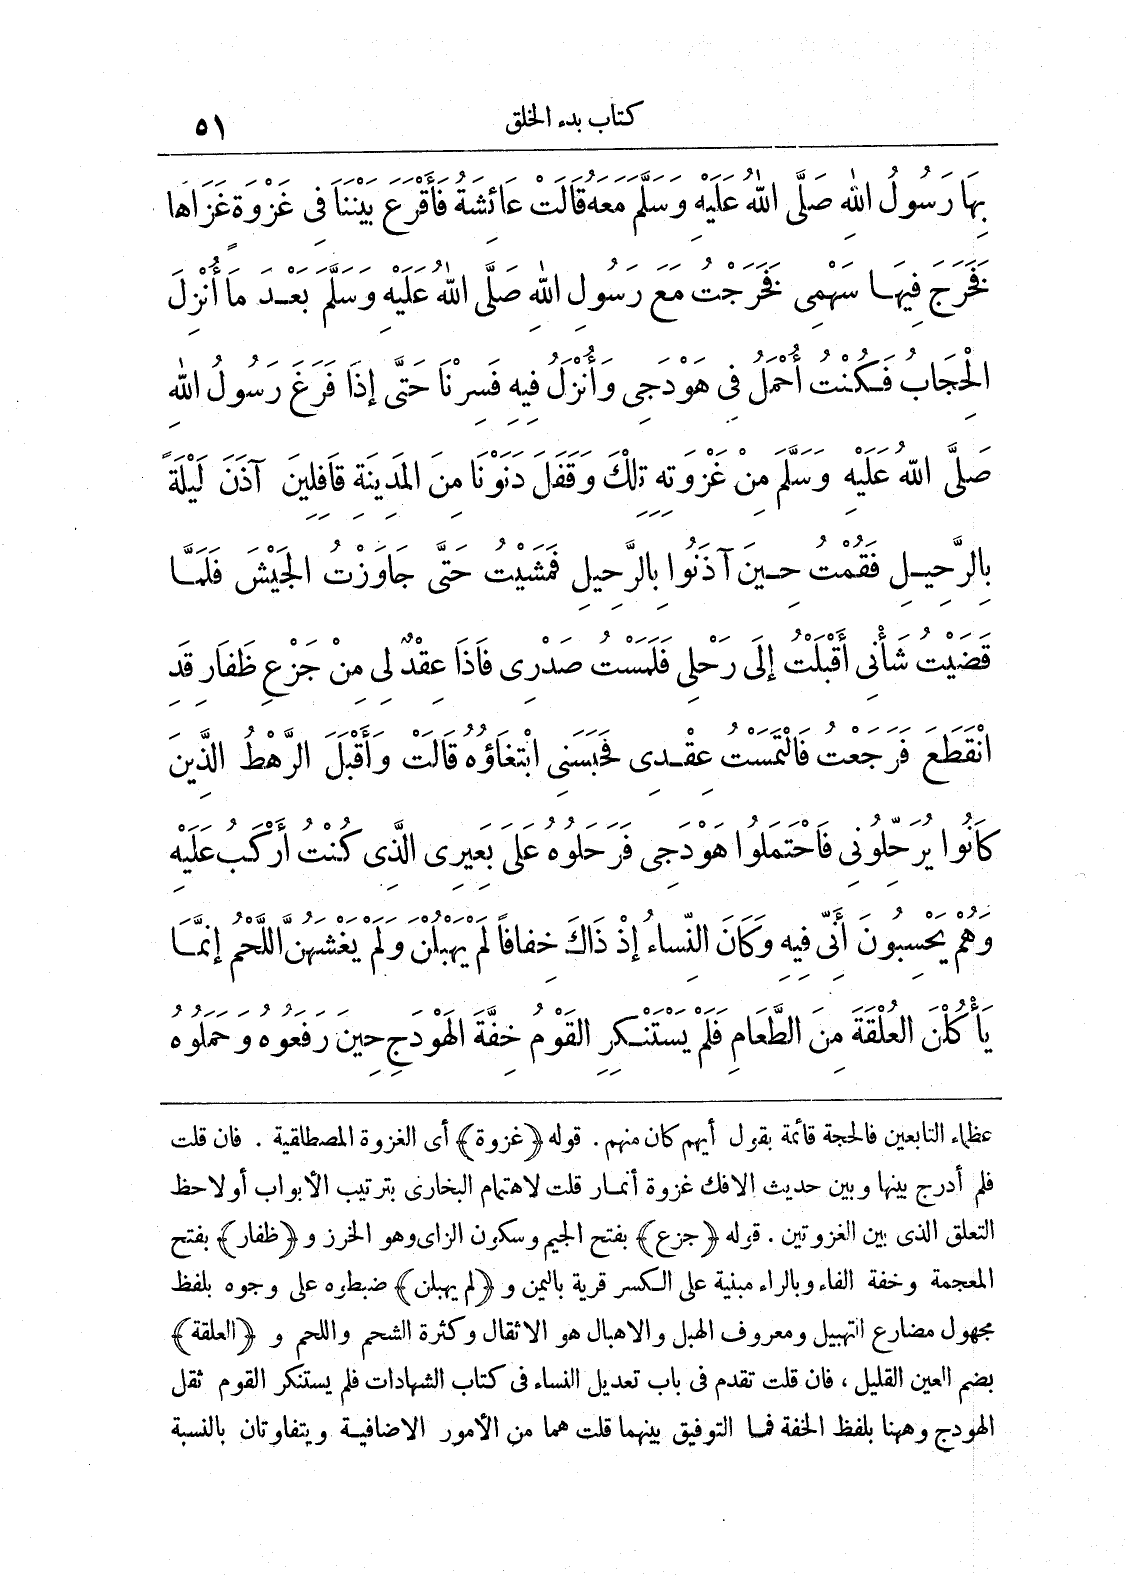 كتاب بدء الخلق ٥١
بِهَا رَسُولُ اللهِ صَلَّى اللهُ عَلَيْهِ وَسَلَّمَ مَعَهُ قَالَتْ عَائِشَةُ فَأَقْرَعَ بَيْنَنَا فِى غَزْوَةٍ غَزَاهَا
فَخَرَجَ فِيهَا سَهْمِى فَخَرَجْتُ مَعَ رَسُولِ اللهِ صَلَّى اللهُ عَلَيْهِ وَسَلَّمَ بَعْدَ مَا أُنْزِلَ
الْحِجَابُ فَكُنْتُ أُحْمَلُ فِى هَوْدَجِى وَأُنْزَلُ فِيهِ فَسِرْنَا حَتَّى إِذَا فَرَغَ رَسُولُ اللهِ
صَلَّى اللهُ عَلَيْهِ وَسَلَّمَ مِنْ غَزْوَتِهِ تِلْكَ وَقَفَلَ دَنَوْنَا مِنَ الْمَدِينَةِ قَافِلِينَ آذَنَ لَيْلَةً
بِالرَّحِيلِ فَقُمْتُ حِينَ آذَنُوا بِالرَّحِيلِ فَمَشَيْتُ حَتَّى جَاوَزْتُ الْجَيْشَ فَلَمَّا
قَضَيْتُ شَأْنِى أَقْبَلْتُ إِلَى رَحْلِى فَلَمَسْتُ صَدْرِى فَاذَا عِقْدٌ لِى مِنْ جَزْعِ ظَفَارِ قَدِ
انْقَطَعَ فَرَجَعْتُ فَالْتَمَسْتُ عِقْدِى فَحَبَسَنِى ابْتِغَاؤُهُ قَالَتْ وَأَقْبَلَ الرَّهْطُ الَّذِينَ
كَانُوا يُرَحِّلُونِى فَاحْتَمَلُوا هَوْدَجِى فَرَحَلُوهُ عَلَى بَعِيرِى الَّذِى كُنْتُ أَرْكَبُ عَلَيْهِ
وَهُمْ يَحْسِبُونَ أَنِّى فِيهِ وَكَانَ النِّسَاءُ إِذْ ذَاكَ خِفَافاً لَمْ يَهْبُلْنَ وَلَمْ يَغْشَهُنَّ اللَّحْمُ إِنَّمَا
يَأْكُلْنَ الْعُلْقَةَ مِنَ الطَّعَامِ فَلَمْ يَسْتَنْكِرِ الْقَوْمُ خِفَّةَ الْهَوْدَجِ حِينَ رَفَعُوهُ وَحَمَلُوهُ
عظماء التابعين فالحجة قائمة بقول أيهم كان منهم. قوله ﴿غزوة﴾ أى الغزوة المصطلقية. فان قلت
فلم أدرج بينها وبين حديث الافك غزوة أنمار قلت لاهتمام البخارى بترتيب الأبواب أو لاحظ
التعلق الذى بين الغزوتين. قوله ﴿جزع﴾ بفتح الجيم وسكون الزاى وهو الخرز و ﴿ظفار﴾ بفتح
المعجمة وخفة الفاء وبالراء مبنية على الكسر قرية باليمن و ﴿لم يهبلن﴾ ضبطوه على وجوه بلفظ
مجهول مضارع التهبيل ومعروف الهبل والاهبال هو الاثقال وكثرة الشحم واللحم و ﴿العلقة﴾
بضم العين القليل، فان قلت تقدم فى باب تعديل النساء فى كتاب الشهادات فلم يستنكر القوم ثقل
الهودج وههنا بلفظ الخفة فما التوفيق بينهما قلت هما من الأمور الاضافية ويتفاوتان بالنسبة